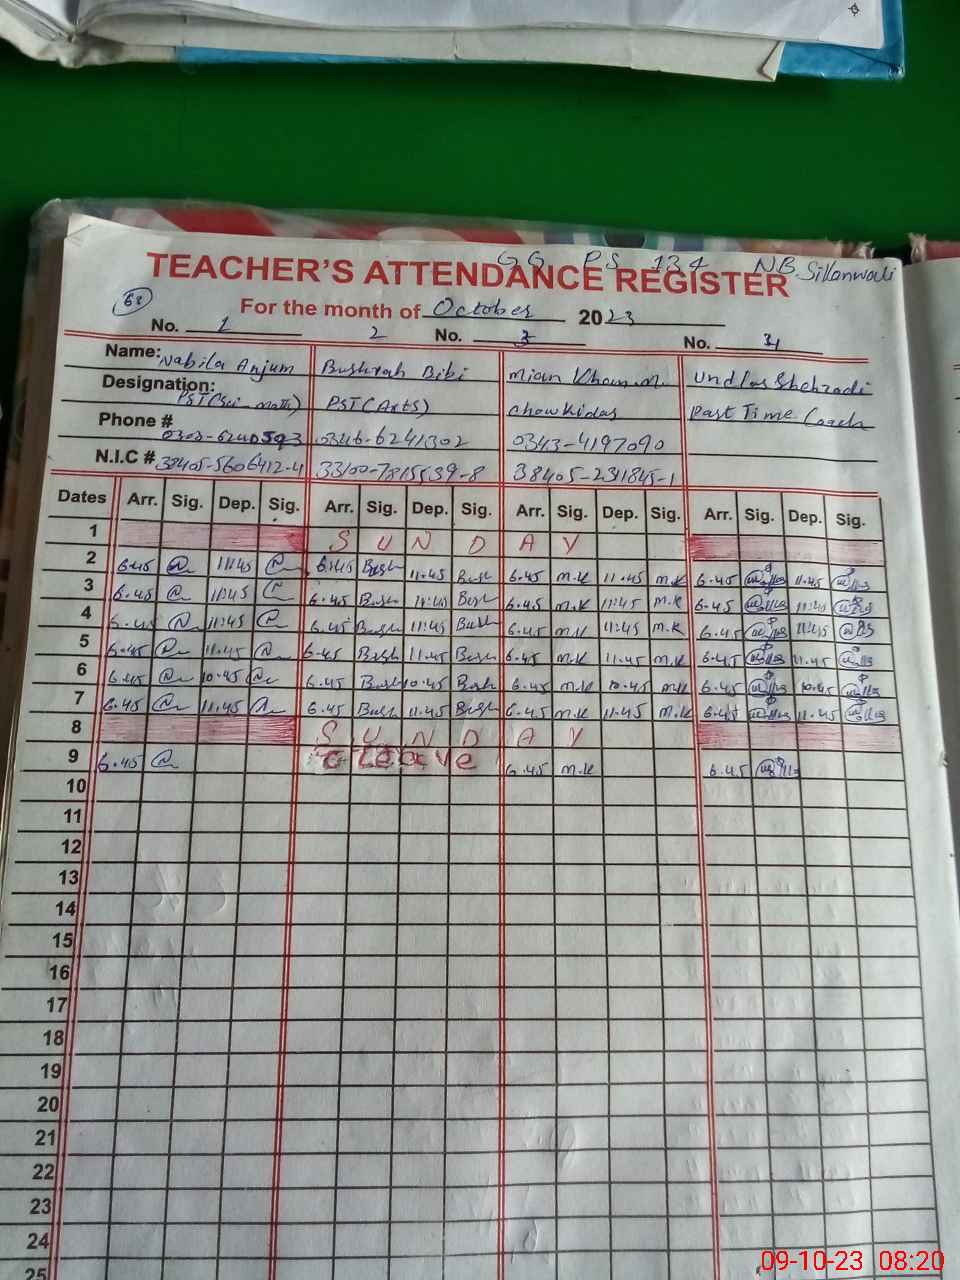 GG PS 134 NB. Sillanwali
TEACHER'S ATTENDANCE REGISTER
68
For the month of October 2023
No. 1 2 No. 3 No.
Name: Nabila Anjum Bushrah Bibi Mian Khan.M Shehzadi
Designation: PST(Sci-math) PST(Arts) Chowkidar Part Time Coach
Phone # 0303-6240593 0346-6241302 0343-4197090
N.I.C # 38405-5606412-4 33100-7815539-8 38405-2311845-1
Dates Arr. Sig. Dep. Sig. Arr. Sig. Dep. Sig. Arr. Sig. Dep. Sig. Arr. Sig. Dep. Sig.
1 S U N D A Y
2 6.45 11:45 6.45 Bush 11.45 Bush 6.45 M.K 11.45 M.K 6.45 11.45
3 6.45 11:45 6.45 Bush 11:45 Bush 6.45 M.K 11:45 M.K 6.45 11:45
4 6.45 11:45 6.45 Bush 11:45 Bush 6.45 M.K 11:45 M.K 6.45 11:45
5 6.45 11.45 6.45 Bush 11.45 Bush 6.45 M.K 11.45 M.K 6.45 11.45
6 6.45 10.45 6.45 Bush 10.45 Bush 6.45 M.K 10.45 M.K 6.45 10.45
7 6.45 11.45 6.45 Bush 11.45 Bush 6.45 M.K 11.45 M.K 6.45 11.45
8 S U N D A Y
9 6.45 Leave 6.45 M.K 6.45
10
11
12
13
14
15
16
17
18
19
20
21
22
23
24
25
09-10-23 08:20